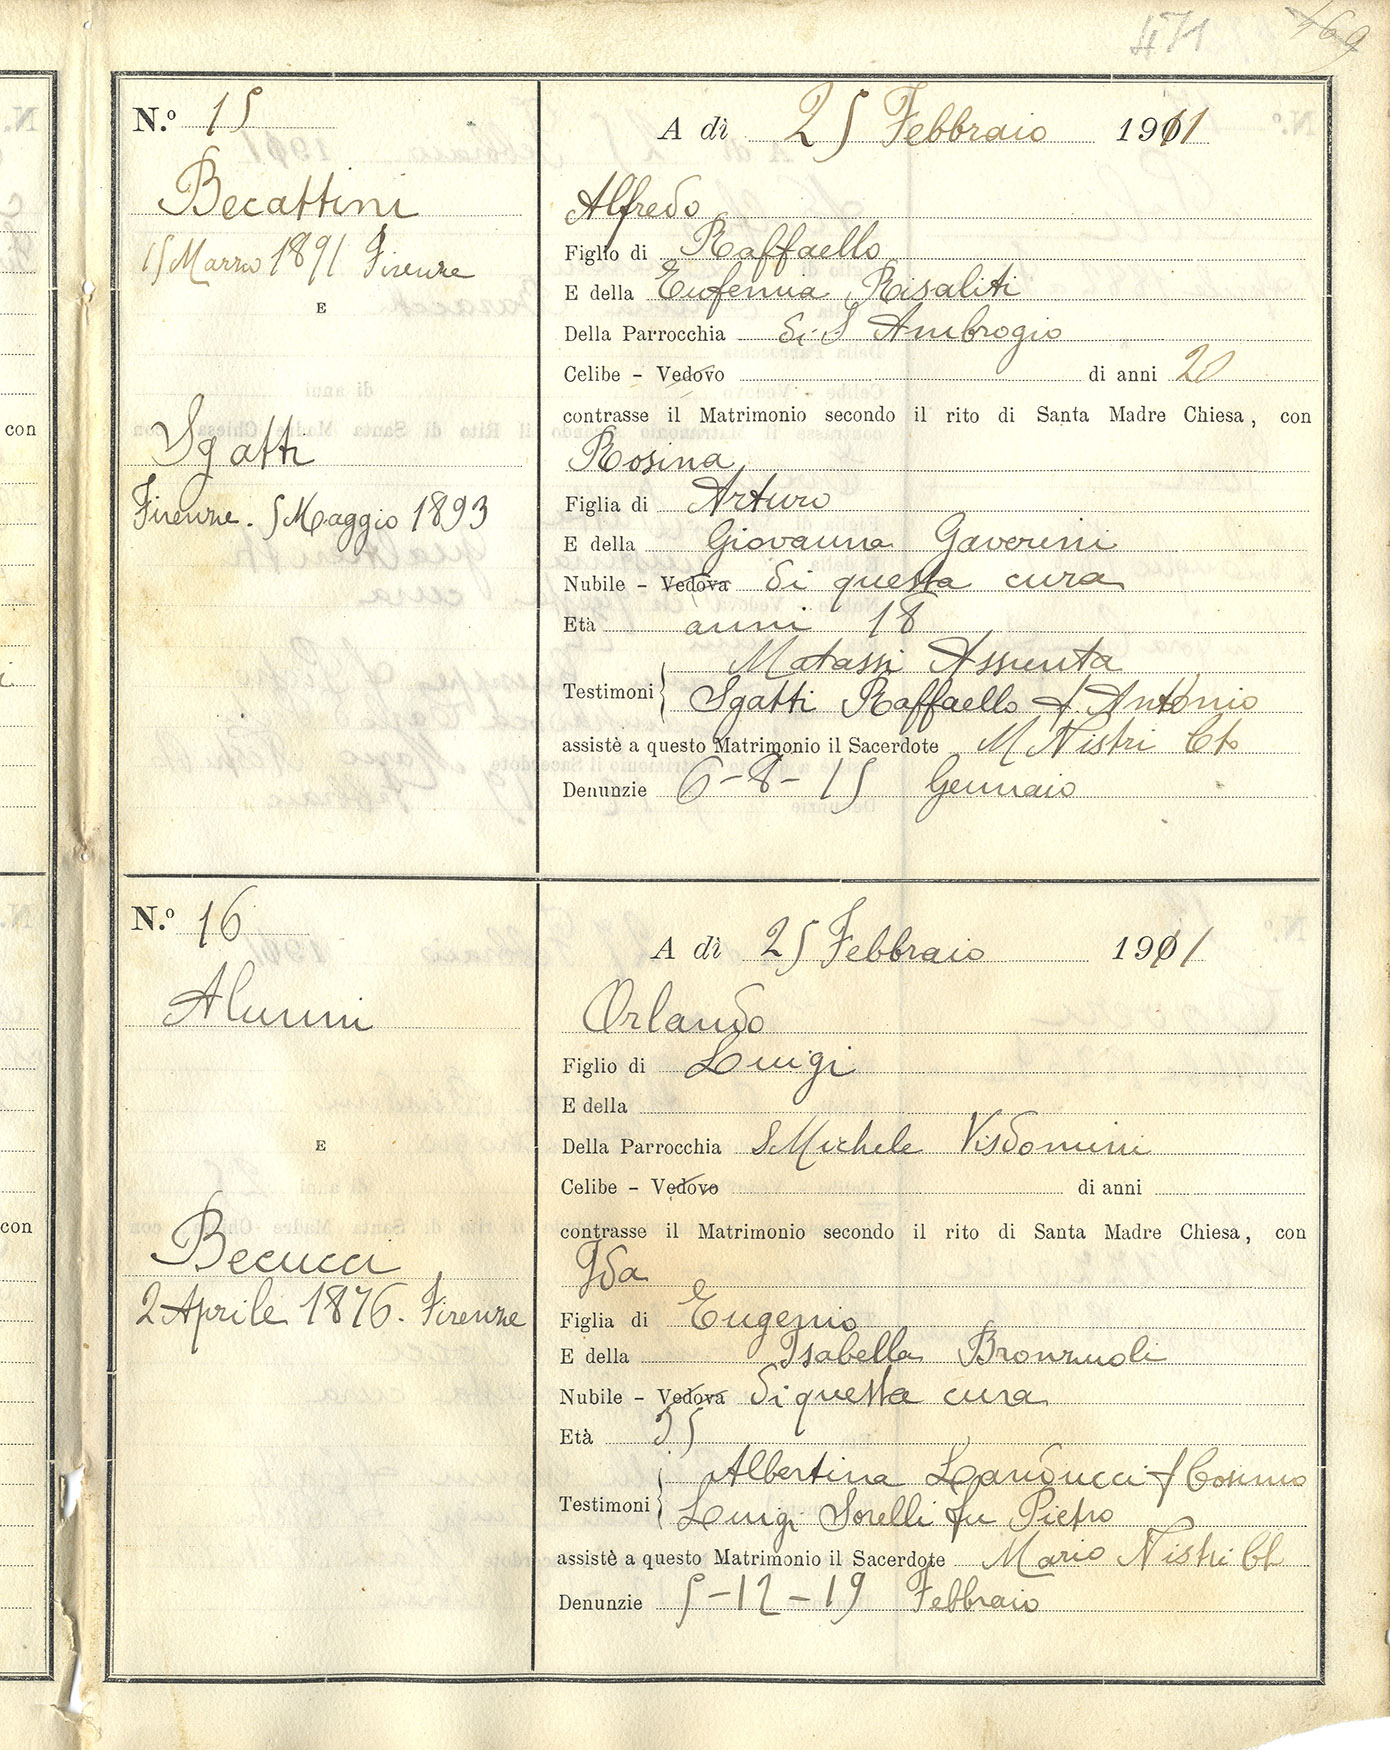 471
469
con
con
N.º 15
Becattini
15 Marzo 1891 Firenze
E
Sgatti
Firenze. 5 Maggio 1893
A dì 25 Febbraio 1911
Alfredo
Figlio di Raffaello
E della Eufemia Risaliti
Della Parrocchia di S Ambrogio
Celibe – Vedovo di anni 20
contrasse il Matrimonio secondo il rito di Santa Madre Chiesa, con
Rosina
Figlia di Arturo
E della Giovanna Gaverini
Nubile – Vedova di questa cura
Età anni 18
Matassi Assunta
Testimoni Sgatti Raffaello f. Antonio
assistè a questo Matrimonio il Sacerdote M Nistri Ct
Denunzie 6-8-15 Gennaio
N.º 16
Alunni
E
Becucci
2 Aprile 1876. Firenze
A dì 25 Febbraio 1911
Orlando
Figlio di Luigi
E della
Della Parrocchia S Michele Visdomini
Celibe – Vedovo di anni
contrasse il Matrimonio secondo il rito di Santa Madre Chiesa, con
Ida
Figlia di Eugenio
E della Isabella Bronzuoli
Nubile – Vedova di questa cura
Età 35
Albertina Landucci f Cosimo
Testimoni Luigi Sorelli fu Pietro
assistè a questo Matrimonio il Sacerdote Mario Nistri Ct
Denunzie 5-12-19 Febbraio